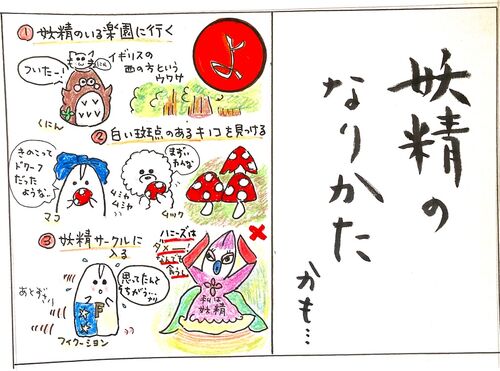 よ
① 妖精のいる楽園に行く
ついたー!
イギリスの
西の方という
ウワサ
くにん
② 白い斑点のあるキノコを見つける
きのこって
ドワーフ
だった
ような…
まずい
わんな
ムシャ
ムシャ
マコ
ムック
③ 妖精サークルに
入る
ハニーズは
ダメー!
なんでも
食うん
あとずさり
思ってたんと
ちがうー…
フィクーション
私は
妖精
妖精の
なりかた
かも…